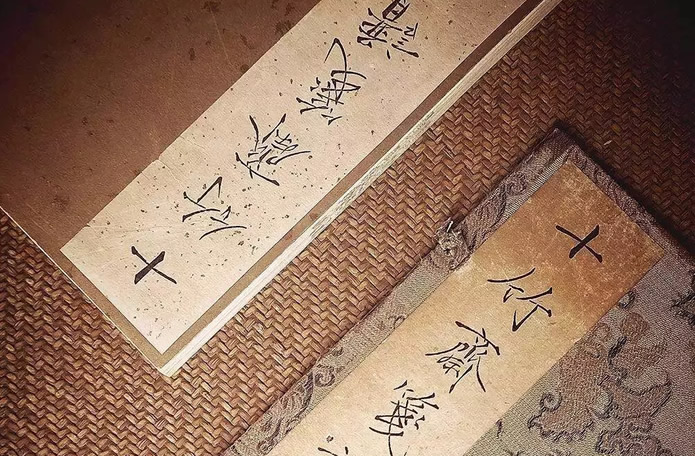 十竹齋箋譜
十竹齋箋